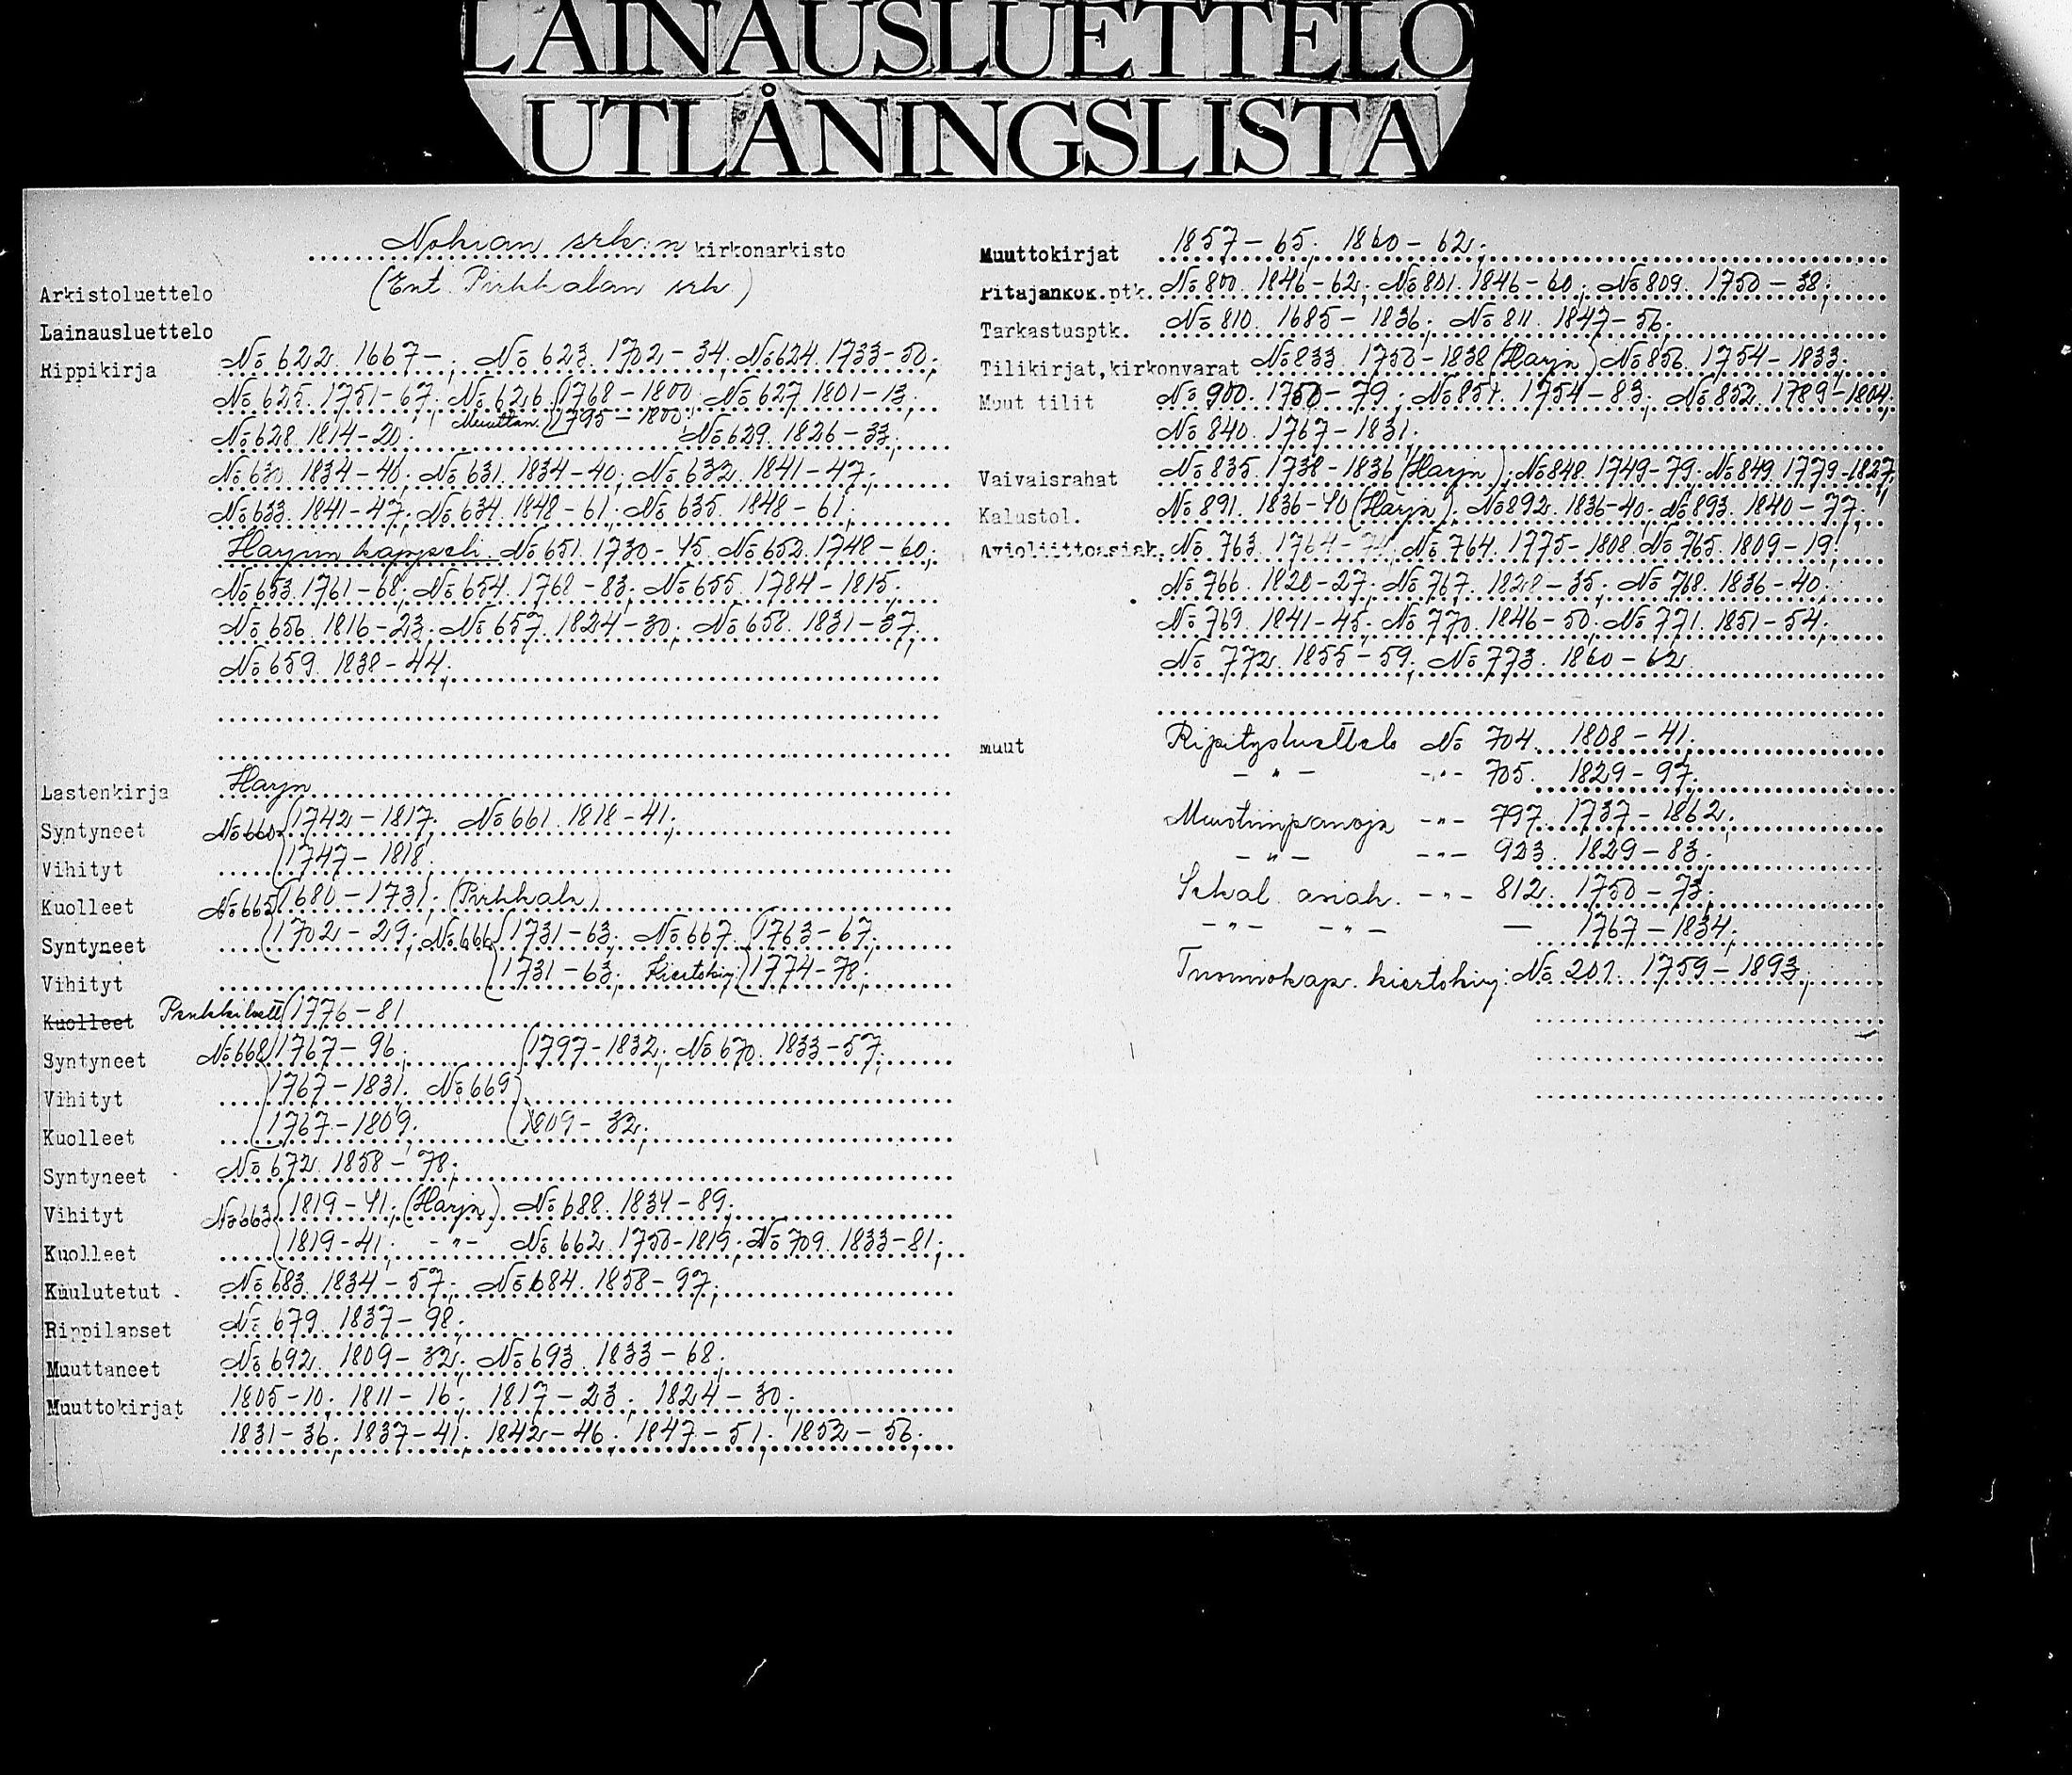 LAINAUSLUETTELO
UTLÅNINGSLISTA
Nokian srk:n kirkonarkisto
(Ent. Pirkkalan srk.)
Arkistoluettelo
Lainausluettelo
Rippikirja No 622. 1667-; No 623. 1702-34; No 624. 1733-50;
No 625. 1751-67; No 626. 1768-1800; No 627. 1801-13;
Muuttan. 1795-1800;
No 628. 1814-20; No 629. 1826-33;
No 630. 1834-40; No 631. 1834-40; No 632. 1841-47;
No 633. 1841-47; No 634. 1848-61; No 635. 1848-61;
Harjun kappeli. No 651. 1730-45. No 652. 1748-60;
No 653. 1761-68; No 654. 1768-83; No 655. 1784-1815;
No 656. 1816-23; No 657. 1824-30; No 658. 1831-37;
No 659. 1838-44;
Lastenkirja Harju
Syntyneet No 660 1742-1817; No 661. 1818-41;
Vihityt 1747-1818.
Kuolleet No 665 1680-1731; (Pirkkala)
Syntyneet 1702-29; No 666 1731-63; No 667. 1763-67;
Vihityt 1731-63; Kiertokirj. 1774-78;
Kuolleet 1776-81
Syntyneet No 668 1767-96; 1797-1832; No 670. 1833-57;
Vihityt 1767-1831. No 669
Kuolleet 1767-1809. 1809-32;
Syntyneet No 672. 1858-78;
Vihityt No 663 1819-41; (Harju) No 688. 1834-89;
Kuolleet 1819-41; -"- No 662. 1750-1819; No 709. 1833-81;
Kuulutetut No 683. 1834-57; No 684. 1858-97;
Rippilapset No 679. 1837-98;
Muuttaneet No 692. 1809-32; No 693. 1833-68;
Muuttokirjat 1805-10; 1811-16; 1817-23; 1824-30;
1831-36; 1837-41; 1842-46; 1847-51; 1852-56;
Muuttokirjat 1857-65; 1860-62;
Pitäjänkok.ptk. No 800. 1846-62; No 801. 1846-60; No 809. 1750-38;
Tarkastusptk. No 810. 1685-1836; No 811. 1847-56;
Tilikirjat,kirkonvarat No 833. 1750-1838 (Harju) No 850. 1754-1833;
Muut tilit No 900. 1750-79; No 851. 1754-83; No 852. 1789-1804;
No 840. 1767-1831;
Vaivaisrahat No 835. 1738-1836 (Harju); No 848. 1749-79; No 849. 1779-1827;
Kalustol. No 891. 1836-40 (Harju); No 892. 1836-40; No 893. 1840-77;
Avioliittoasiak. No 763. No 764. 1775-1808. No 765. 1809-19;
No 766. 1820-27; No 767. 1828-35; No 768. 1836-40;
No 769. 1841-45; No 770. 1846-50; No 771. 1851-54;
No 772. 1855-59; No 773. 1860-62.
Muut Ripitysluettelo No 704. 1808-41;
-"- -"- 705. 1829-97.
Muistiinpanoja -"- 797. 1737-1862;
-"- -"- 923. 1829-83;
Sekal. asiak. -"- 812. 1750-73;
-"- -"- - 1767-1834;
Tuomiokap. kiertokirj: No 201. 1759-1893;